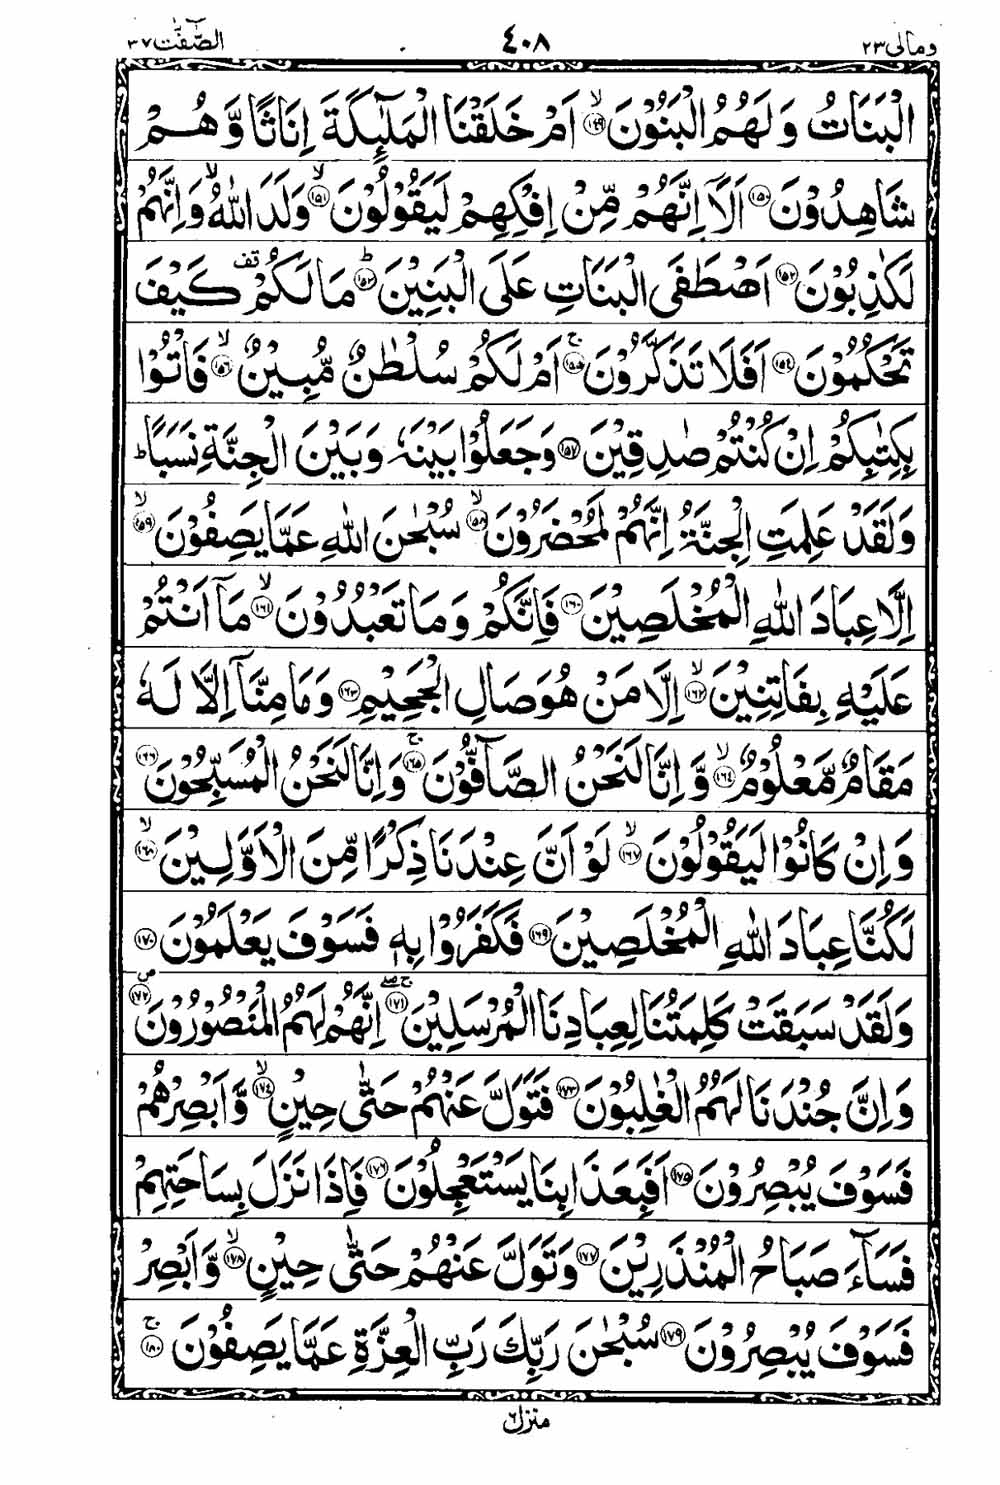 ومالی ٢٣ ٤٠٨ الصّٰٓفّٰت ٣٧
الْبَنَاتُ وَلَهُمُ الْبَنُوْنَ ۙ﴿١٤٩﴾ اَمْ خَلَقْنَا الْمَلٰٓئِكَةَ اِنَاثًا وَّهُمْ
شَاهِدُوْنَ ﴿١٥٠﴾ اَلَاۤ اِنَّهُمْ مِّنْ اِفْكِهِمْ لَيَقُوْلُوْنَ ۙ﴿١٥١﴾ وَلَدَ اللّٰهُ ۙ وَاِنَّهُمْ
لَكٰذِبُوْنَ ﴿١٥٢﴾ اَصْطَفَى الْبَنَاتِ عَلَى الْبَنِيْنَ ؕ﴿١٥٣﴾ مَا لَكُمْ قف كَيْفَ
تَحْكُمُوْنَ ﴿١٥٤﴾ اَفَلَا تَذَكَّرُوْنَ ۚ﴿١٥٥﴾ اَمْ لَكُمْ سُلْطٰنٌ مُّبِيْنٌ ۙ﴿١٥٦﴾ فَاْتُوْا
بِكِتٰبِكُمْ اِنْ كُنْتُمْ صٰدِقِيْنَ ﴿١٥٧﴾ وَجَعَلُوْا بَيْنَهٗ وَبَيْنَ الْجِنَّةِ نَسَبًا ؕ
وَلَقَدْ عَلِمَتِ الْجِنَّةُ اِنَّهُمْ لَمُحْضَرُوْنَ ۙ﴿١٥٨﴾ سُبْحٰنَ اللّٰهِ عَمَّا يَصِفُوْنَ ۙ﴿١٥٩﴾
اِلَّا عِبَادَ اللّٰهِ الْمُخْلَصِيْنَ ﴿١٦٠﴾ فَاِنَّكُمْ وَمَا تَعْبُدُوْنَ ۙ﴿١٦١﴾ مَاۤ اَنْتُمْ
عَلَيْهِ بِفَاتِنِيْنَ ۙ﴿١٦٢﴾ اِلَّا مَنْ هُوَ صَالِ الْجَحِيْمِ ﴿١٦٣﴾ وَمَا مِنَّاۤ اِلَّا لَهٗ
مَقَامٌ مَّعْلُوْمٌ ۙ﴿١٦٤﴾ وَّاِنَّا لَنَحْنُ الصَّآفُّوْنَ ۚ﴿١٦٥﴾ وَاِنَّا لَنَحْنُ الْمُسَبِّحُوْنَ ﴿١٦٦﴾
وَاِنْ كَانُوْا لَيَقُوْلُوْنَ ۙ﴿١٦٧﴾ لَوْ اَنَّ عِنْدَنَا ذِكْرًا مِّنَ الْاَوَّلِيْنَ ۙ﴿١٦٨﴾
لَكُنَّا عِبَادَ اللّٰهِ الْمُخْلَصِيْنَ ﴿١٦٩﴾ فَكَفَرُوْا بِهٖ فَسَوْفَ يَعْلَمُوْنَ ﴿١٧٠﴾
وَلَقَدْ سَبَقَتْ كَلِمَتُنَا لِعِبَادِنَا الْمُرْسَلِيْنَ ۚۖ﴿١٧١﴾ اِنَّهُمْ لَهُمُ الْمَنْصُوْرُوْنَ ص﴿١٧٢﴾
وَاِنَّ جُنْدَنَا لَهُمُ الْغٰلِبُوْنَ ﴿١٧٣﴾ فَتَوَلَّ عَنْهُمْ حَتّٰى حِيْنٍ ۙ﴿١٧٤﴾ وَّاَبْصِرْهُمْ
فَسَوْفَ يُبْصِرُوْنَ ﴿١٧٥﴾ اَفَبِعَذَابِنَا يَسْتَعْجِلُوْنَ ﴿١٧٦﴾ فَاِذَا نَزَلَ بِسَاحَتِهِمْ
فَسَآءَ صَبَاحُ الْمُنْذَرِيْنَ ﴿١٧٧﴾ وَتَوَلَّ عَنْهُمْ حَتّٰى حِيْنٍ ۙ﴿١٧٨﴾ وَّاَبْصِرْ
فَسَوْفَ يُبْصِرُوْنَ ﴿١٧٩﴾ سُبْحٰنَ رَبِّكَ رَبِّ الْعِزَّةِ عَمَّا يَصِفُوْنَ ۚ﴿١٨٠﴾
منزل ٦